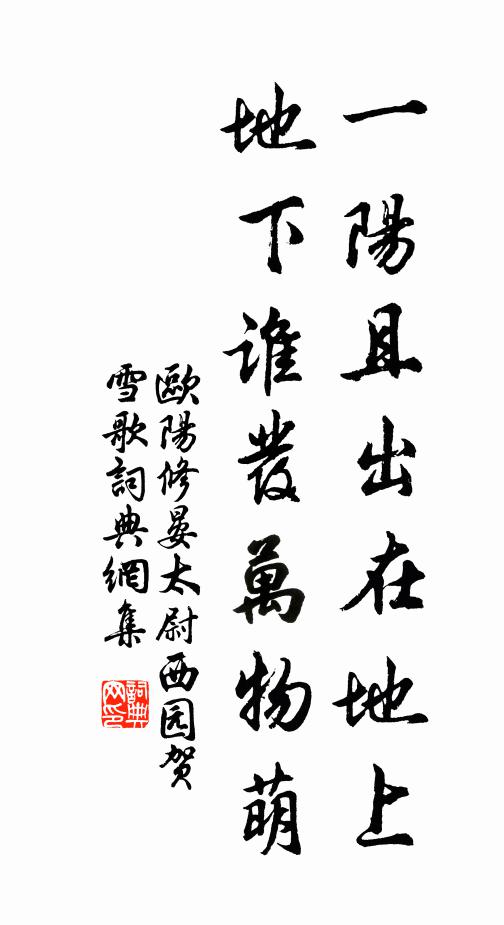 一陽且出在地上
地下誰發萬物萌
歐陽修晏太尉西园贺
雪歌詞典網集
詞典
网印